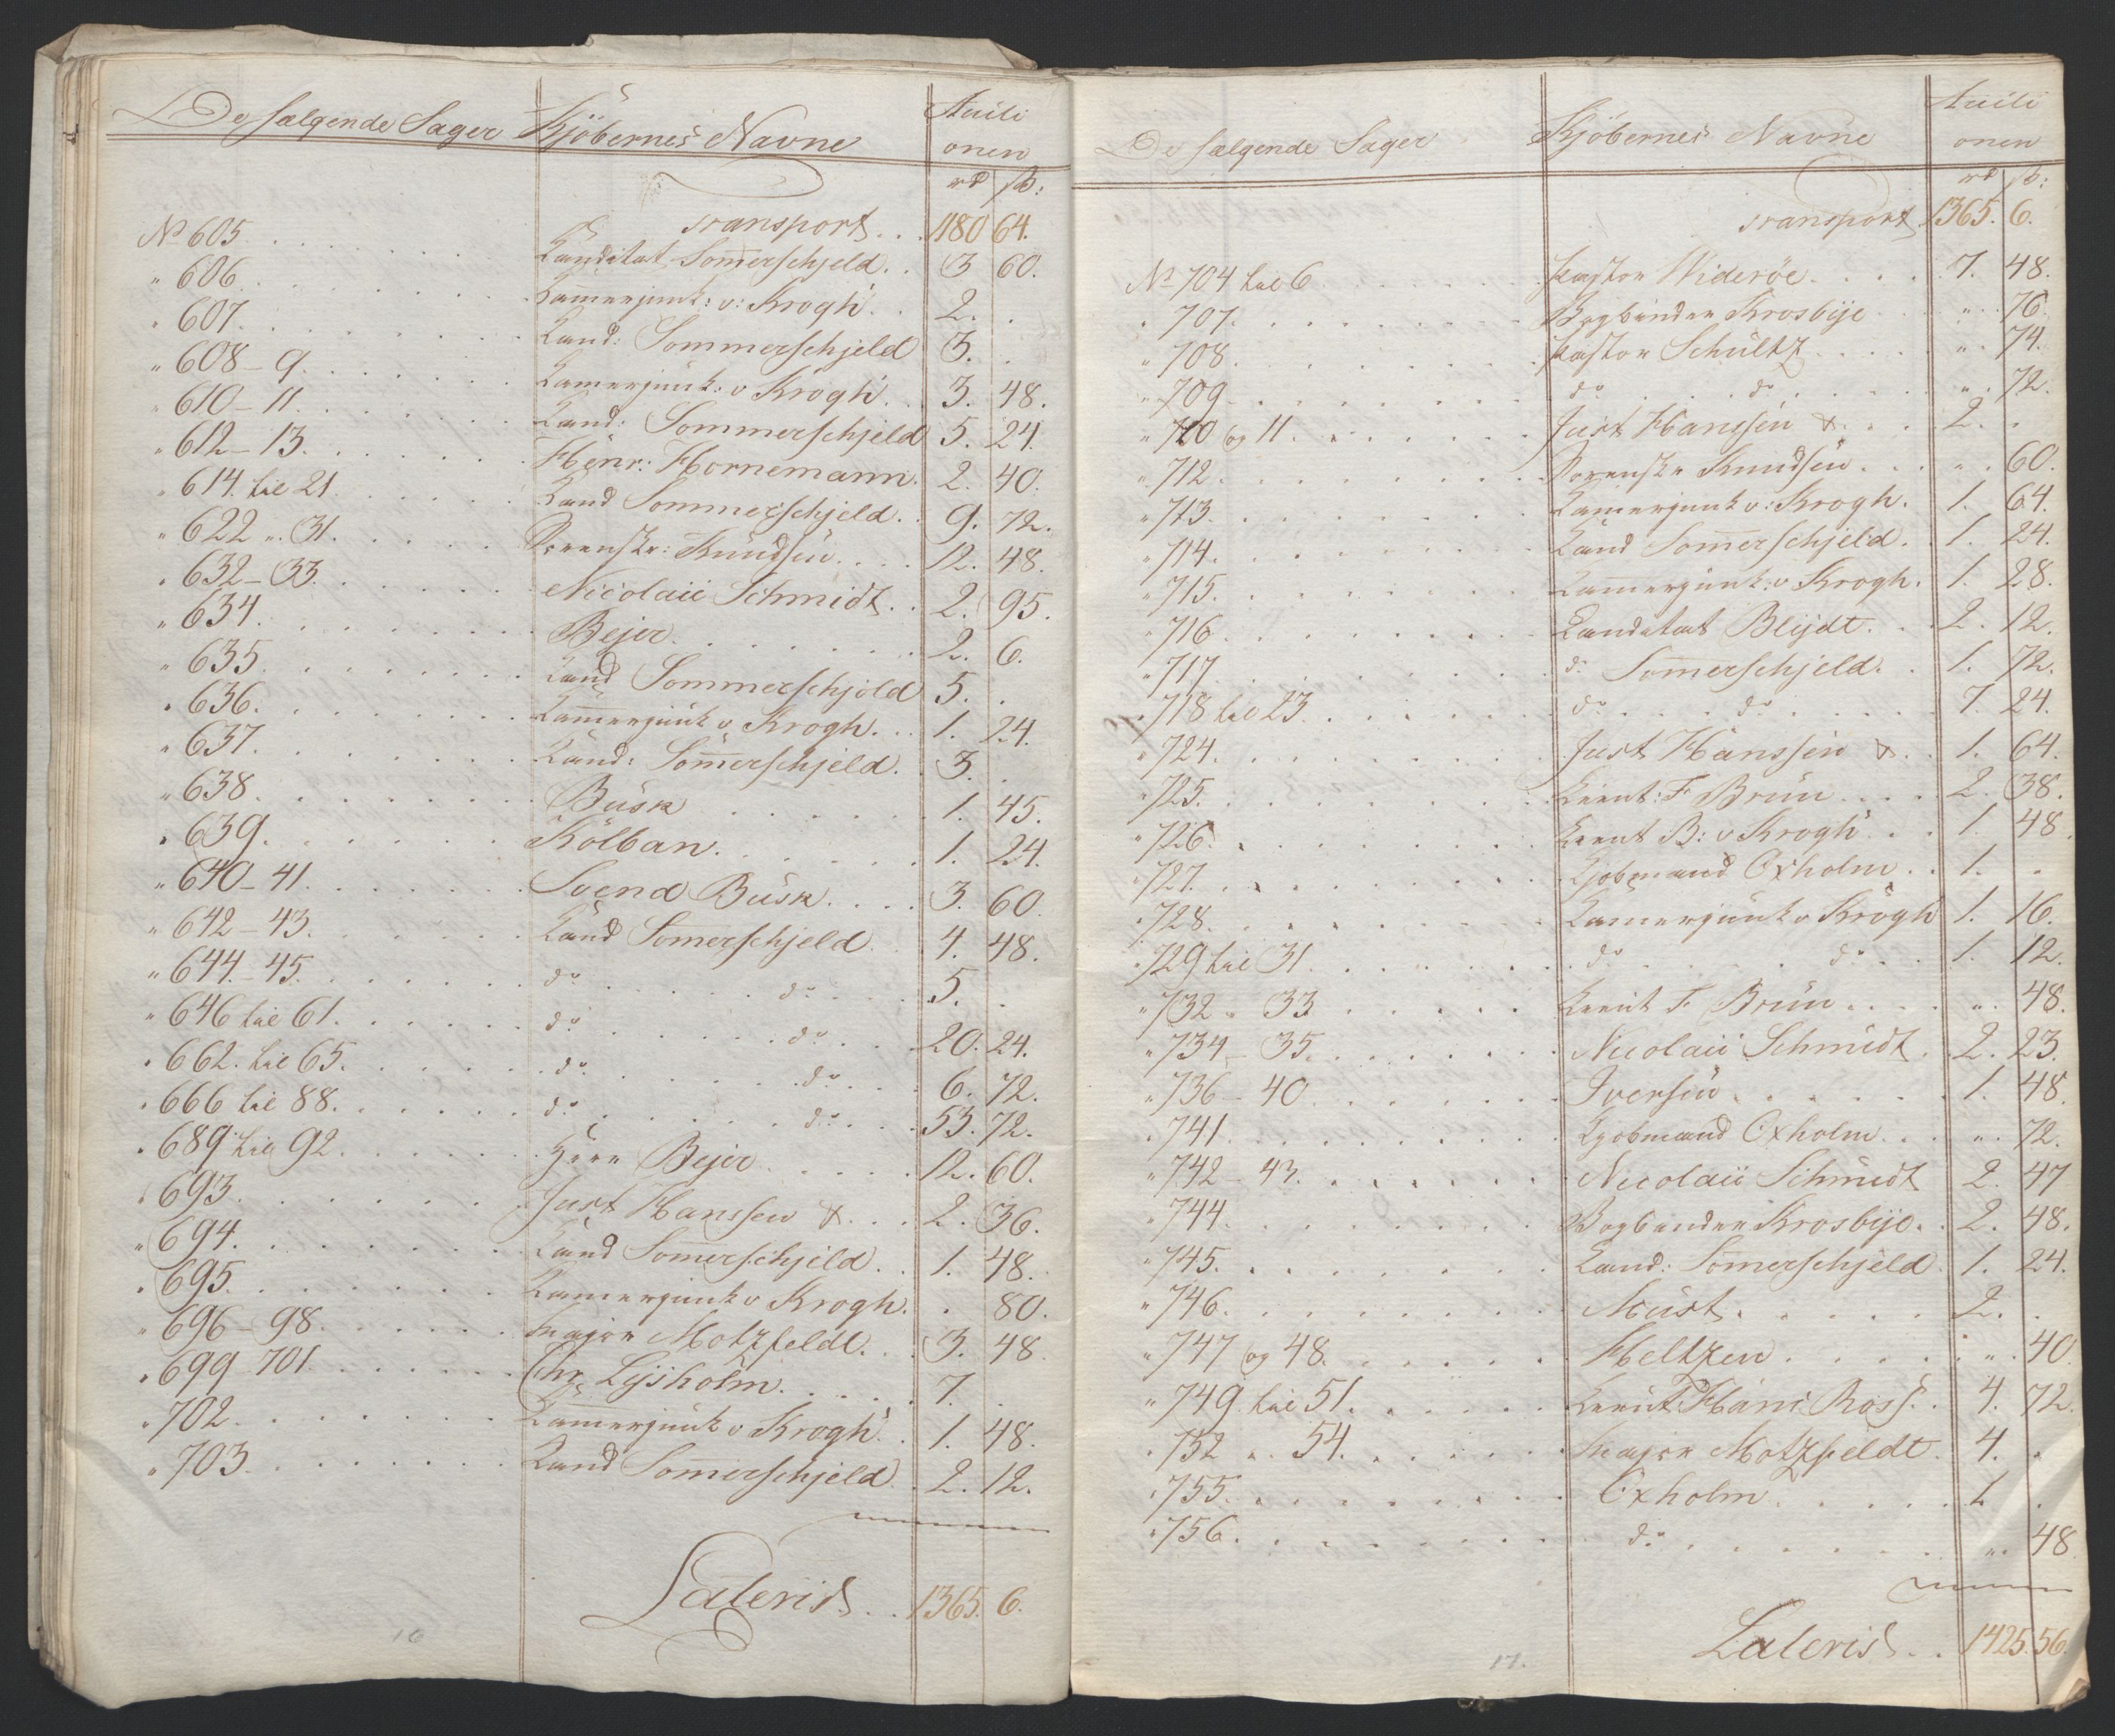 De sælgende Sager Kjöbernes Navne Auili
onen
rd sk:
Transport. . . 1180 64.
No 605. Kanditat Somerschjeld. . 3 60.
" 606. Kamerjunk: v: Krogh. . 2. .
" 607. Kand: Sommerschjeld 3. .
" 608 - 9. Kamerjunk: v Krogh. . 3. 48.
" 610 - 11. Kand: Sommerschjeld 5. 24.
" 612 - 13. Henr: Hornemann. 2. 40.
" 614. til 21. Kand Sommerschjeld. . 9. 72.
" 622 " 31. Sorenskr: Knudsen. . . . 12. 48.
" 632 - 33. Nicolaii Schmidt. . 2. 95.
" 634. Bejer. 2. 6.
" 635. Kand Sommerschjöld 5. .
" 636. Kamerjunk v Krogh. . . 1. 24.
" 637. Kand: Somerschjeld. . 3. .
" 638. Busk 1. 45.
" 639. Kölban. 1. 24.
" 640 - 41. Svend Busk. . . . 3. 60.
" 642 - 43. Kand Somerschjeld. 4. 48.
" 644 - 45. do do 5. .
" 646 til 61. do do 20. 24.
" 662. til 65. do do 6. 72.
" 666 til 88. do do 53. 72.
" 689 til 92. Herr Bejer 12. 60.
" 693. Just Hanssen & . . . 2. 36.
" 694. Kand Somerschjeld. . 1. 48.
" 695. Kamerjunk v Krogh. . 80.
" 696 - 98. Major Motzfeldt. . . 3. 48.
" 699 - 701. Chr Lysholm. . . . 7. .
" 702. Kamerjunk v Krogh. . 1. 48.
" 703. Kand Somerschjeld. . 2. 12.
Lateris . . 1365. 6.
16
De sælgende Sager Kjöbernes Navne Auili
onen
rd sk:
Transport 1365. 6.
No 704 til 6 Pastor Widerøe. . . . 7. 48.
" 707. Bogbinder Krosbye " 76.
" 708. Pastor Schultz " 74.
" 709. do do " 72.
" 710 og 11. Just Hanssen & . . . 2. .
" 712. Sorenskr Knudsen. . . " 60.
" 713. Kamerjunk v: Krogh. 1. 64.
" 714. Kand Somerschjeld. . 1. 24.
" 715. Kamerjunk: v Krogh. 1. 28.
" 716. Kanditat Blijdt. . . 2. 12.
" 717. do Somerschjeld. . 1. 72.
" 718 til 23. do do 7. 24.
" 724. Just Hanssen & . . 1. 64.
" 725. Lieut: F Brun. . . . 2. 38.
" 726. Lieut B: v Krogh. . . 1. 48.
" 727. Kjøbmand Oxholm. . 1. .
" 728. Kamerjunk v Krogh 1. 16.
" 729 til 31. do do 1. 12.
" 732 " 33 Lieut F Brun. . . . " 48.
" 734 - 35. Nicolaii Schmidt. 2. 23.
" 736 - 40 Iversen 1. 48.
" 741. Kjøbmand Oxholm. . . " 72.
" 742 - 43. Nicolaii Schmidt 2. 47
" 744. Bogbinder Krosbye. . 2. 48.
" 745. Kand: Somerschjeld. 1. 24.
" 746. Must. 2. .
" 747 og 48. Heltzen. " 40.
" 749. til 51. Lieut Hans Ross. . 4. 72.
" 752 " 54. Major Motzfeldt. 4. .
" 755. Oxholm. 1 .
" 756. do " 48.
Lateris . . 1425. 56.
17.